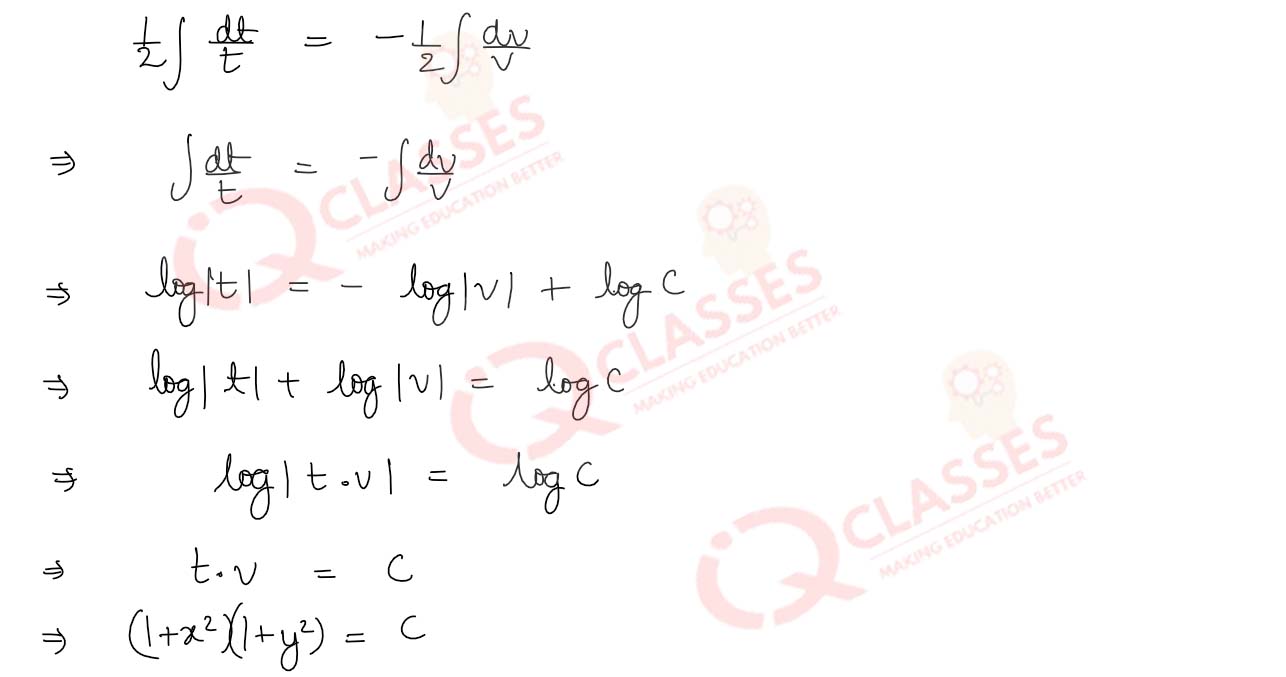 1/2 ∫ dt/t = -1/2 ∫ dv/v
⇒ ∫ dt/t = - ∫ dv/v
⇒ log|t| = - log|v| + log C
⇒ log|t| + log|v| = log C
⇒ log|t.v| = log C
⇒ t.v = C
⇒ (1+x²)(1+y²) = C
iQ CLASSES
MAKING EDUCATION BETTER
iQ CLASSES
MAKING EDUCATION BETTER
iQ CLASSES
MAKING EDUCATION BETTER